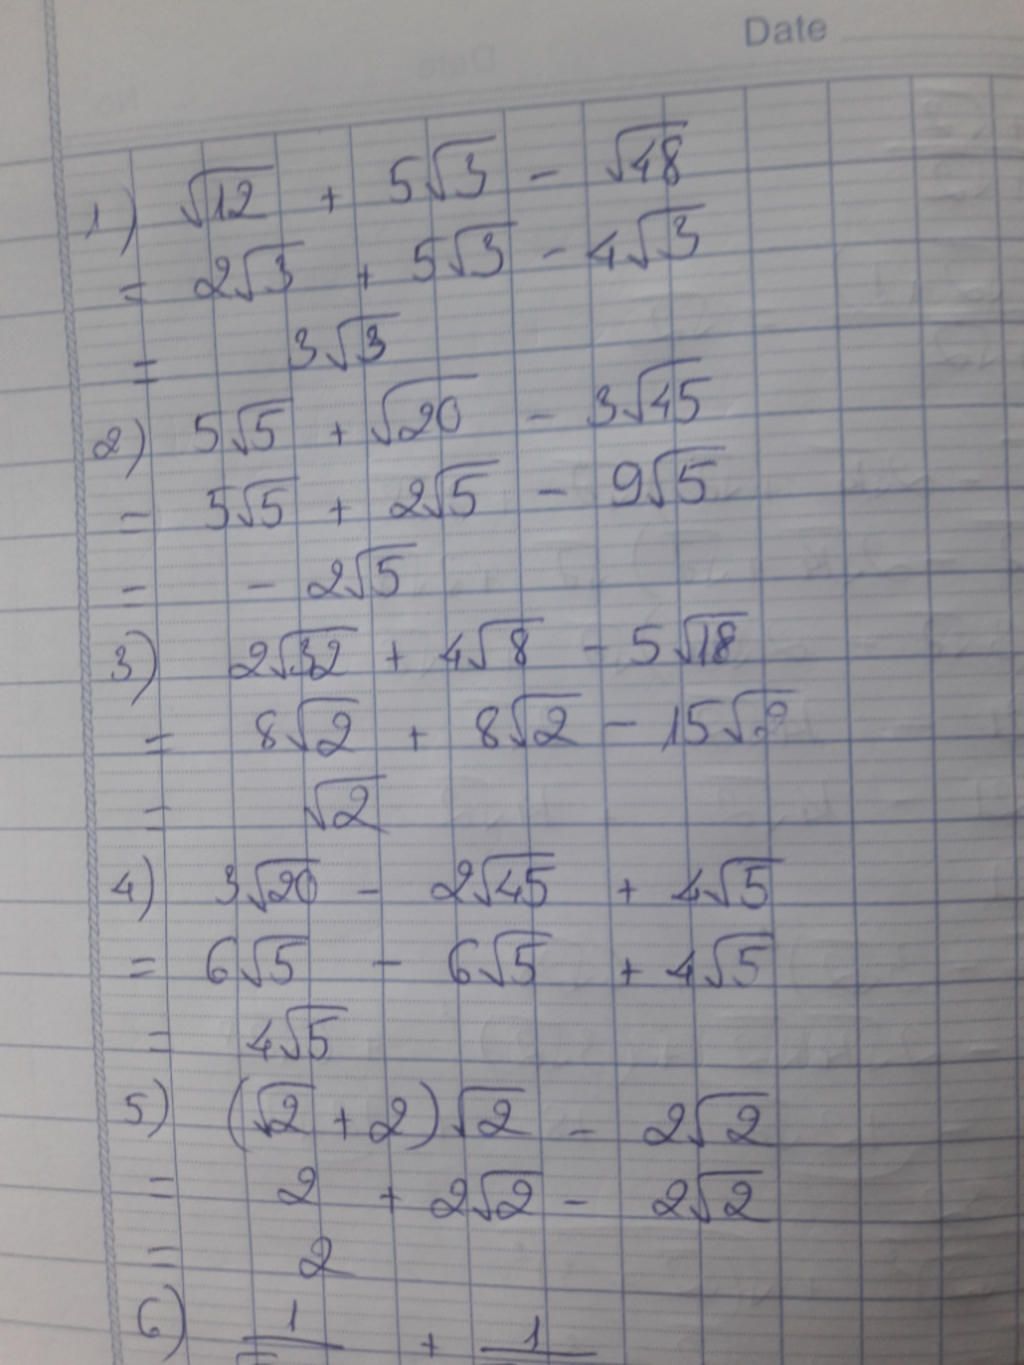 Date
1) √12 + 5√3 - √48
= 2√3 + 5√3 - 4√3
= 3√3
2) 5√5 + √20 - 3√45
= 5√5 + 2√5 - 9√5
= - 2√5
3) 2√32 + 4√8 - 5√18
= 8√2 + 8√2 - 15√2
= √2
4) 3√20 - 2√45 + 4√5
= 6√5 - 6√5 + 4√5
= 4√5
5) (√2 + 2)√2 - 2√2
= 2 + 2√2 - 2√2
= 2
6) 1 + 1